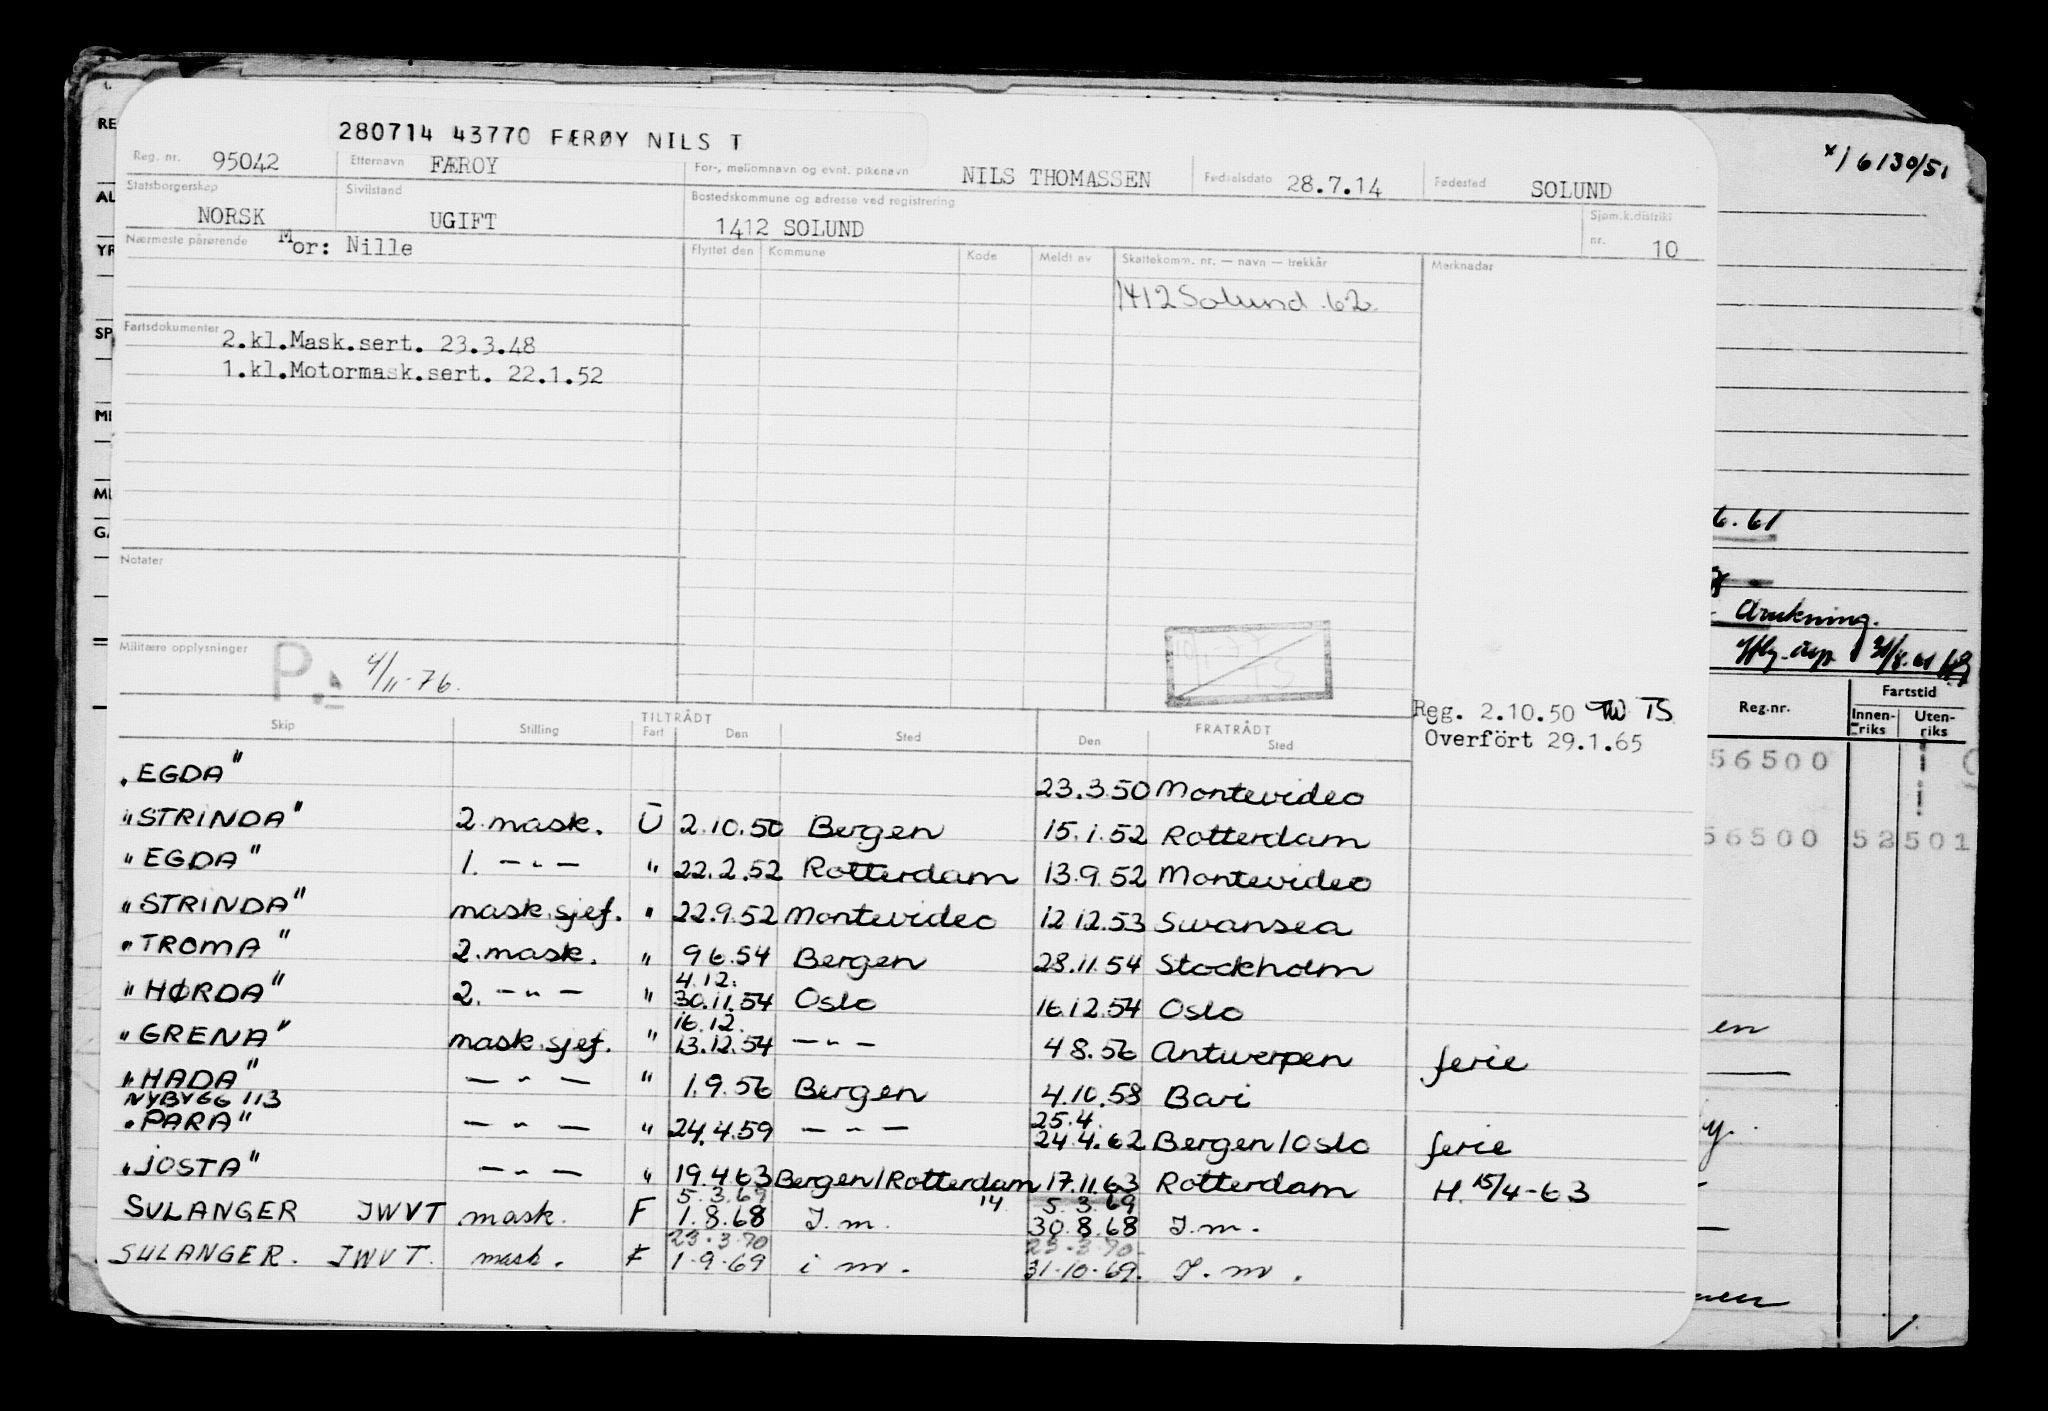 280714 43770 FÆRØY NILS T
Reg. nr. 95042 Etternavn FÆROY For-, mellomnavn og evnt. pikenavn NILS THOMASSEN Fødselsdato 28.7.14 Fødested SOLUND
Statsborgerskap NORSK Sivilstand UGIFT Bostedskommune og adresse ved registrering 1412 SOLUND Sjøm.k.distrikt nr. 10
Nærmeste pårørende Mor: Nille Flyttet den Kommune Kode Meldt av Skattekomm. nr. — navn — trekkår Merknader
1412 Solund .62.
Fartsdokumenter 2.kl.Mask.sert. 23.3.48
1.kl.Motormask.sert. 22.1.52
Notater
Militære opplysninger P. 4/11-76.
Reg. 2.10.50 TS
Overfört 29.1.65
Skip Stilling TILTRÅDT Fart Den Sted FRATRÅDT Den Sted
"EGDA" 23.3.50 Montevideo
"STRINDA" 2. mask. U 2.10.50 Bergen 15.1.52 Rotterdam
"EGDA" 1. — " — " 22.2.52 Rotterdam 13.9.52 Montevideo
"STRINDA" mask.sjef. " 22.9.52 Montevideo 12.12.53 Swansea
"TROMA" 2. mask. " 9.6.54 Bergen 28.11.54 Stockholm
4.12.
"HØRDA" 2. — " — " 30.11.54 Oslo 16.12.54 Oslo
16.12.
"GRENA" mask.sjef. " 13.12.54 — " — 4.8.56 Antwerpen ferie
"HADA" — " — " 1.9.56 Bergen 4.10.58 Bari
NYBYGG 113 25.4.
"PARA" — " — " 24.4.59 — " — 24.4.62 Bergen/Oslo ferie
"JOSTA" — " — " 19.4.63 Bergen/Rotterdam 17.11.63 Rotterdam H. 15/4-63
5.3.69 14 5.3.69
SULANGER JWVT mask. F 1.8.68 I.m. 30.8.68 I.m.
23.3.70 23.3.70
SULANGER. JWVT. mask. F 1.9.69 i m. 31.10.69. I.m.
x) 6130/51
6.61
Reg.nr. Fartstid
Innenriks Utenriks
56500
56500 52 501
en